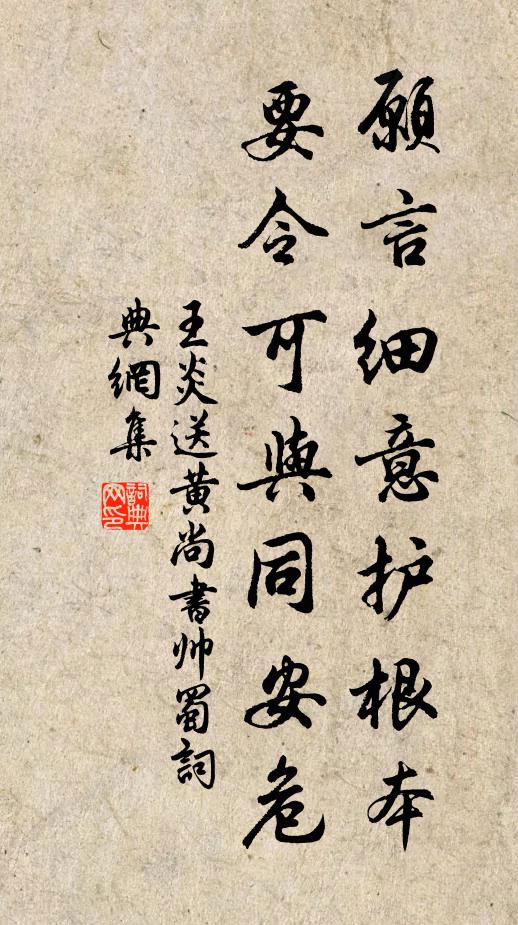 願言細意护根本
要令可與同安危
王炎送黄尚書帅蜀詞
典網集
詞典
网印